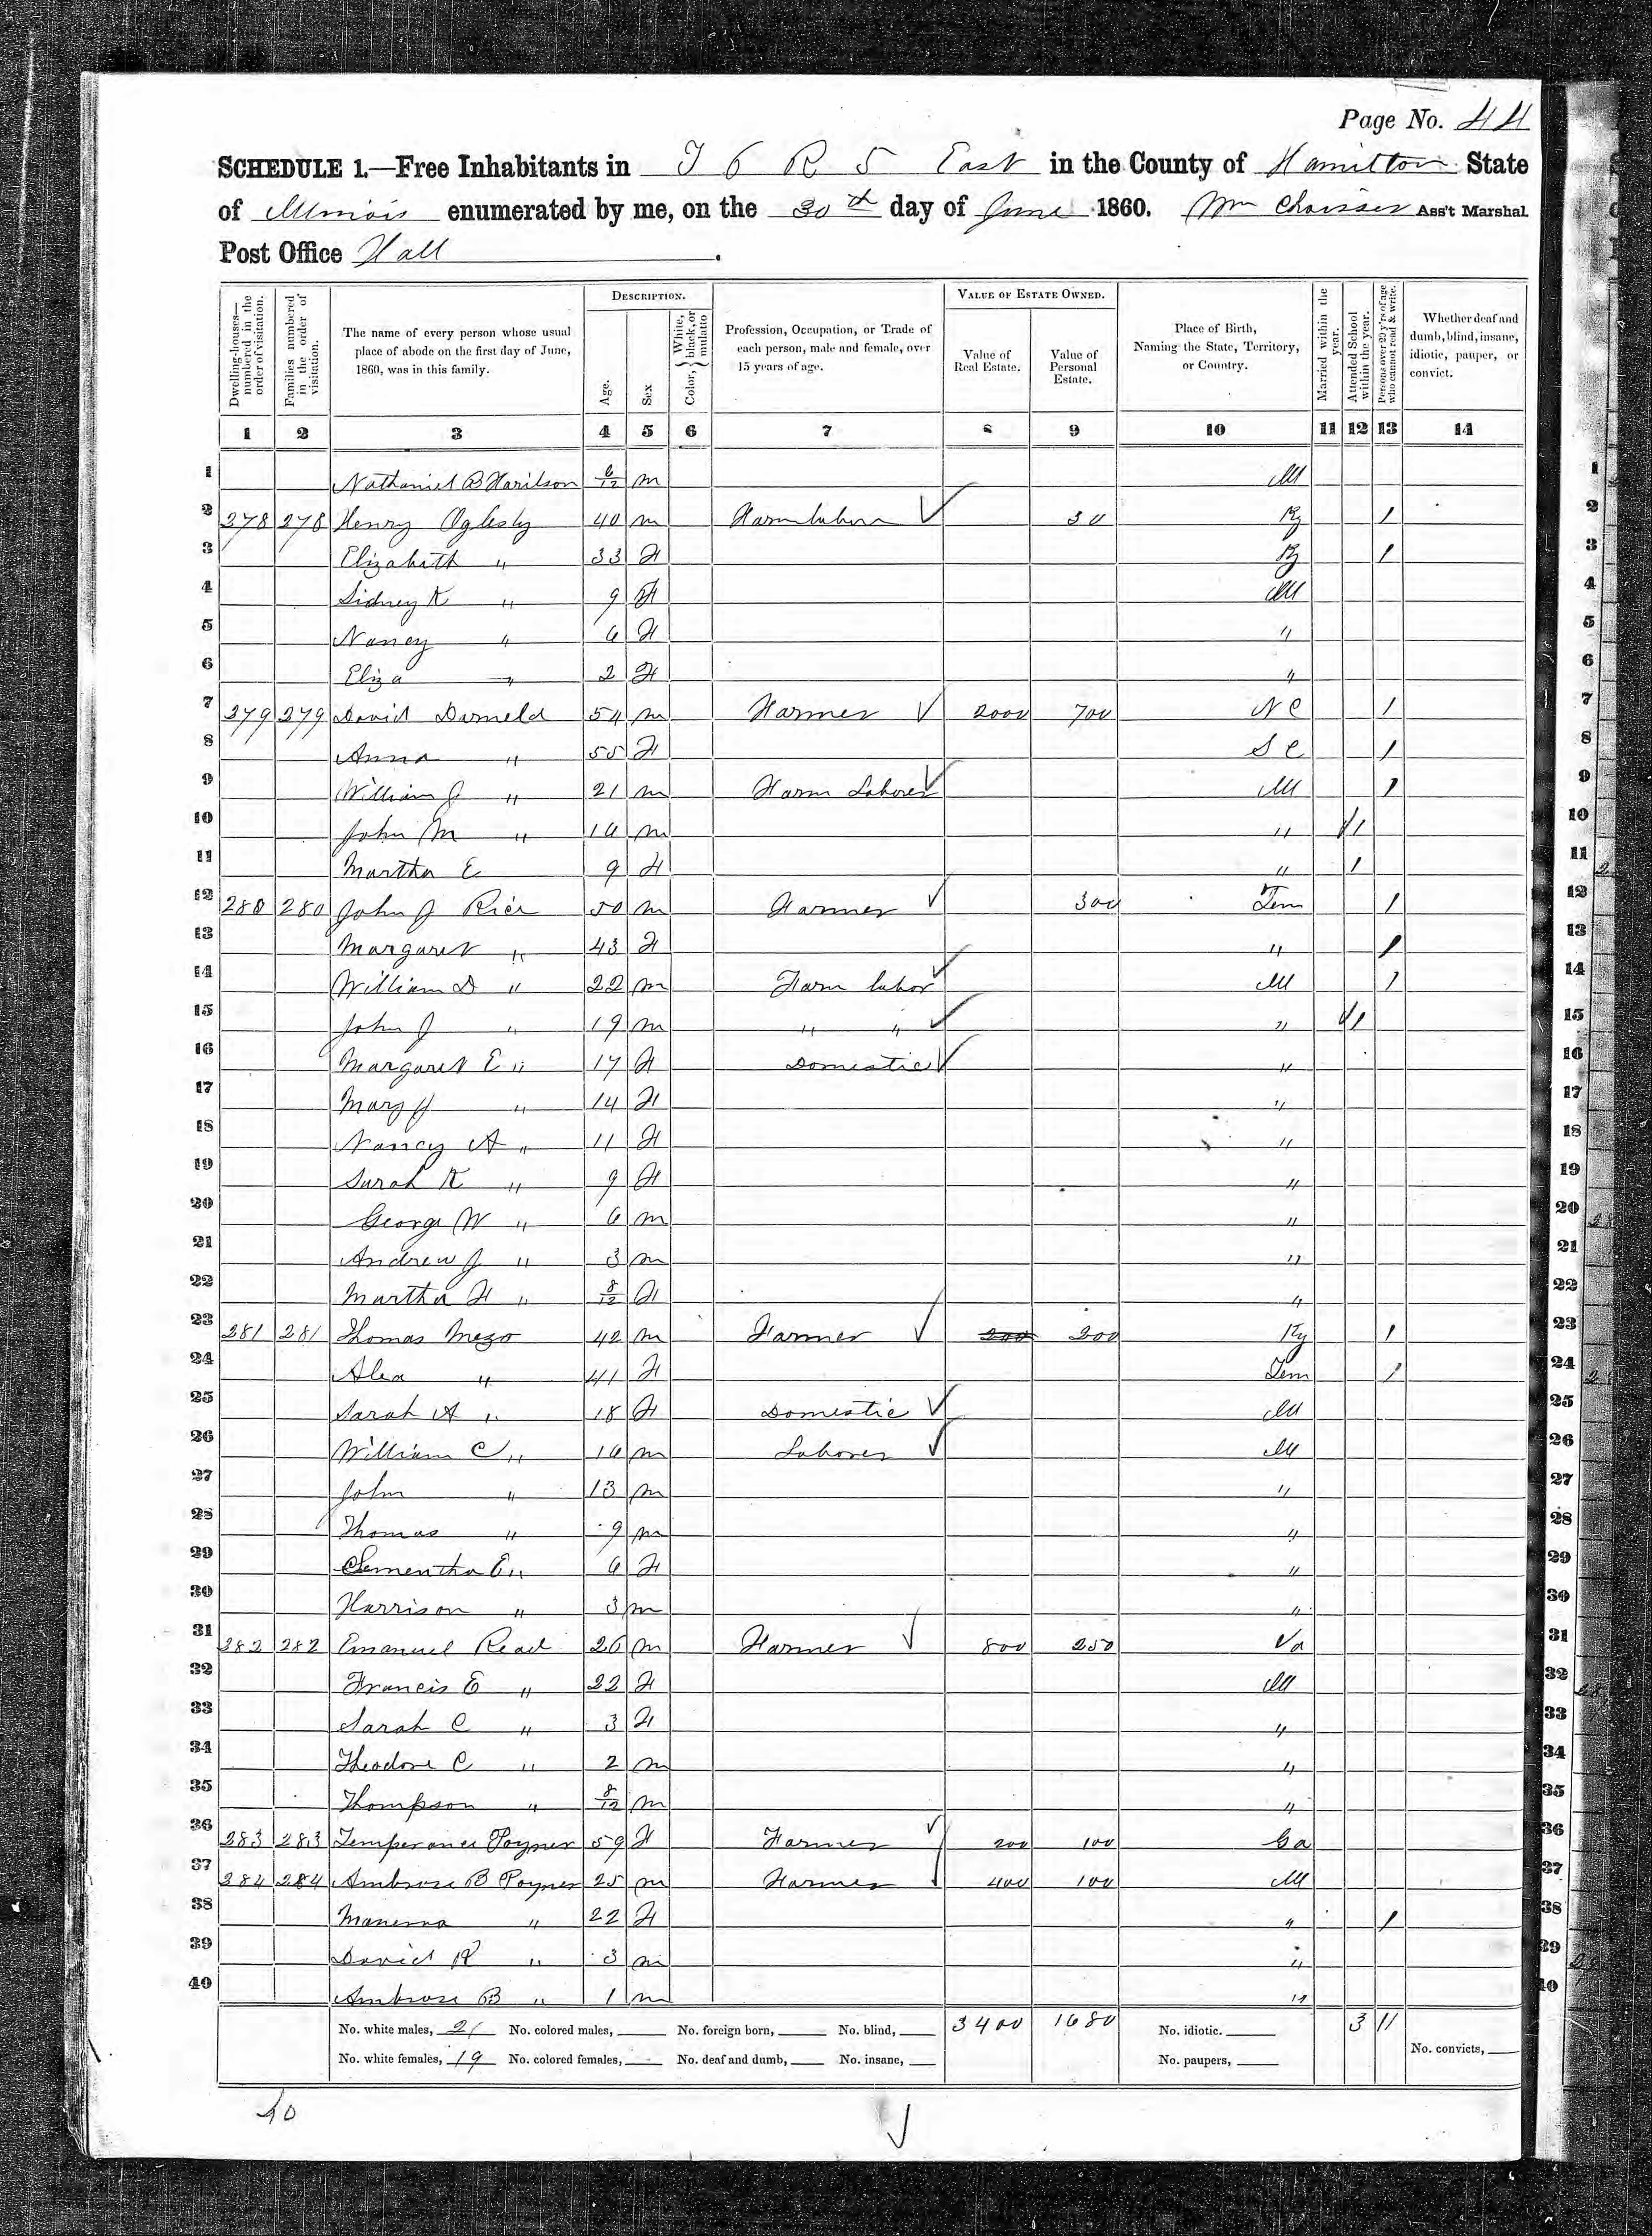 Page No. 44
SCHEDULE 1.—Free Inhabitants in T 6 R 5 East in the County of Hamilton State
of Illinois enumerated by me, on the 30th day of June 1860. Wm Ass't Marshal
Post Office Hall.
Dwelling-houses—numbered in the order of visitation.
Families numbered in the order of visitation.
The name of every person whose usual place of abode on the first day of June, 1860, was in this family.
DESCRIPTION.
Age.
Sex
Color, } White, black, or mulatto
Profession, Occupation, or Trade of each person, male and female, over 15 years of age.
VALUE OF ESTATE OWNED.
Value of Real Estate.
Value of Personal Estate.
Place of Birth, Naming the State, Territory, or Country.
Married within the year.
Attended School within the year.
Persons over 20 y'rs of age who cannot read & write.
Whether deaf and dumb, blind, insane, idiotic, pauper, or convict.
1 2 3 4 5 6 7 8 9 10 11 12 13 14
1 Nathaniel B Harilson 6/12 m Ill 1
2 278 278 Henry Oglesby 40 m Farm labor 30 Ky 1 2
3 Elizabeth " 33 F Ky 1 3
4 Sidney K " 9 F Ill 4
5 Nancy " 6 F " 5
6 Eliza " 2 F " 6
7 279 279 David Darneld 54 m Farmer 2000 700 N C 1 7
8 Anna " 55 F S C 1 8
9 William J " 21 m Farm Laborer Ill 1 9
10 John M " 16 m " 1 10
11 Martha E 9 F " 1 11
12 280 280 John J Rice 50 m Farmer 300 Tenn 1 12
13 Margaret " 43 F " 1 13
14 William D " 22 m Farm labor Ill 1 14
15 John J " 19 m " " " 1 15
16 Margaret E " 17 F Domestic " 16
17 Mary J " 14 F " 17
18 Nancy A " 11 F " 18
19 Sarah K " 9 F " 19
20 George W " 6 m " 20
21 Andrew J " 3 m " 21
22 Martha F " 8/12 F " 22
23 281 281 Thomas Mezo 42 m Farmer 200 300 Ky 1 23
24 Alea " 41 F Tenn 1 24
25 Sarah A " 18 F Domestic Ill 25
26 William C " 16 m Laborer Ill 26
27 John " 13 m " 27
28 Thomas " 9 m " 28
29 Sementha E " 6 F " 29
30 Harrison " 3 m " 30
31 282 282 Emanuel Read 26 m Farmer 800 250 Va 31
32 Francis E " 22 F Ill 32
33 Sarah C " 3 F " 33
34 Theodore C " 2 m " 34
35 Thompson " 8/12 m " 35
36 283 283 Temperance Poyner 59 F Farmer 200 100 Ga 36
37 284 284 Ambrose B Poyner 25 m Farmer 400 100 Ill 37
38 Manerva " 22 F " 1 38
39 David R " 3 m " 39
40 Ambrose B " 1 m " 40
No. white males, 21 No. colored males, No. foreign born, No. blind, 3400 1680 No. idiotic. 3 11
No. white females, 19 No. colored females, No. deaf and dumb, No. insane, No. paupers, No. convicts,
40